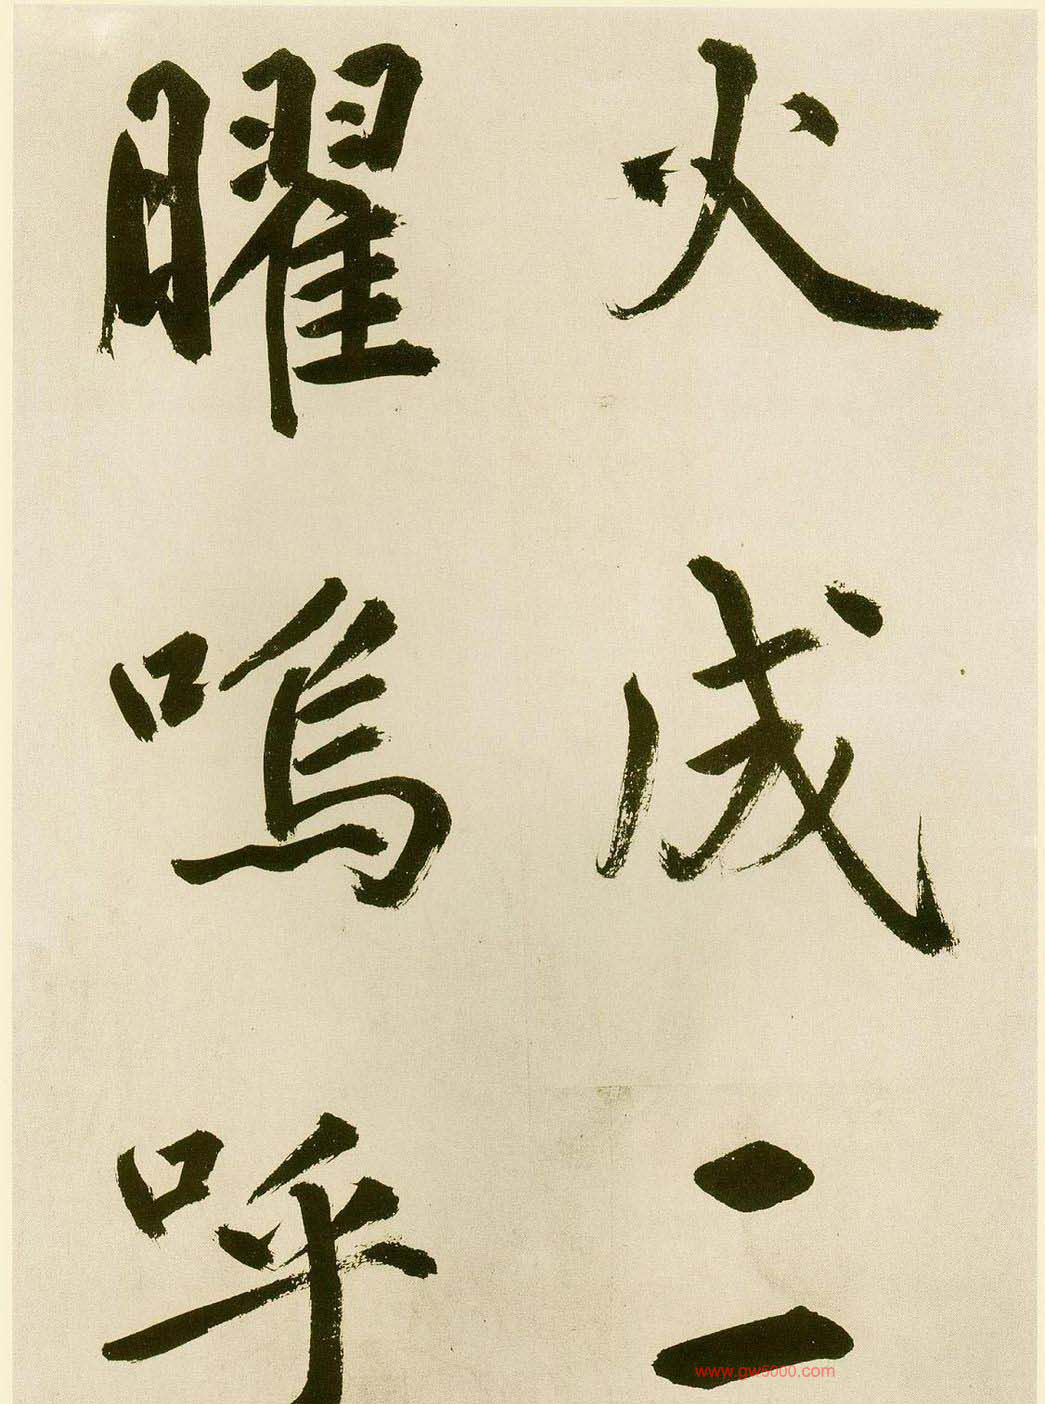 火成二
曜嗚呼
www.gw5000.com